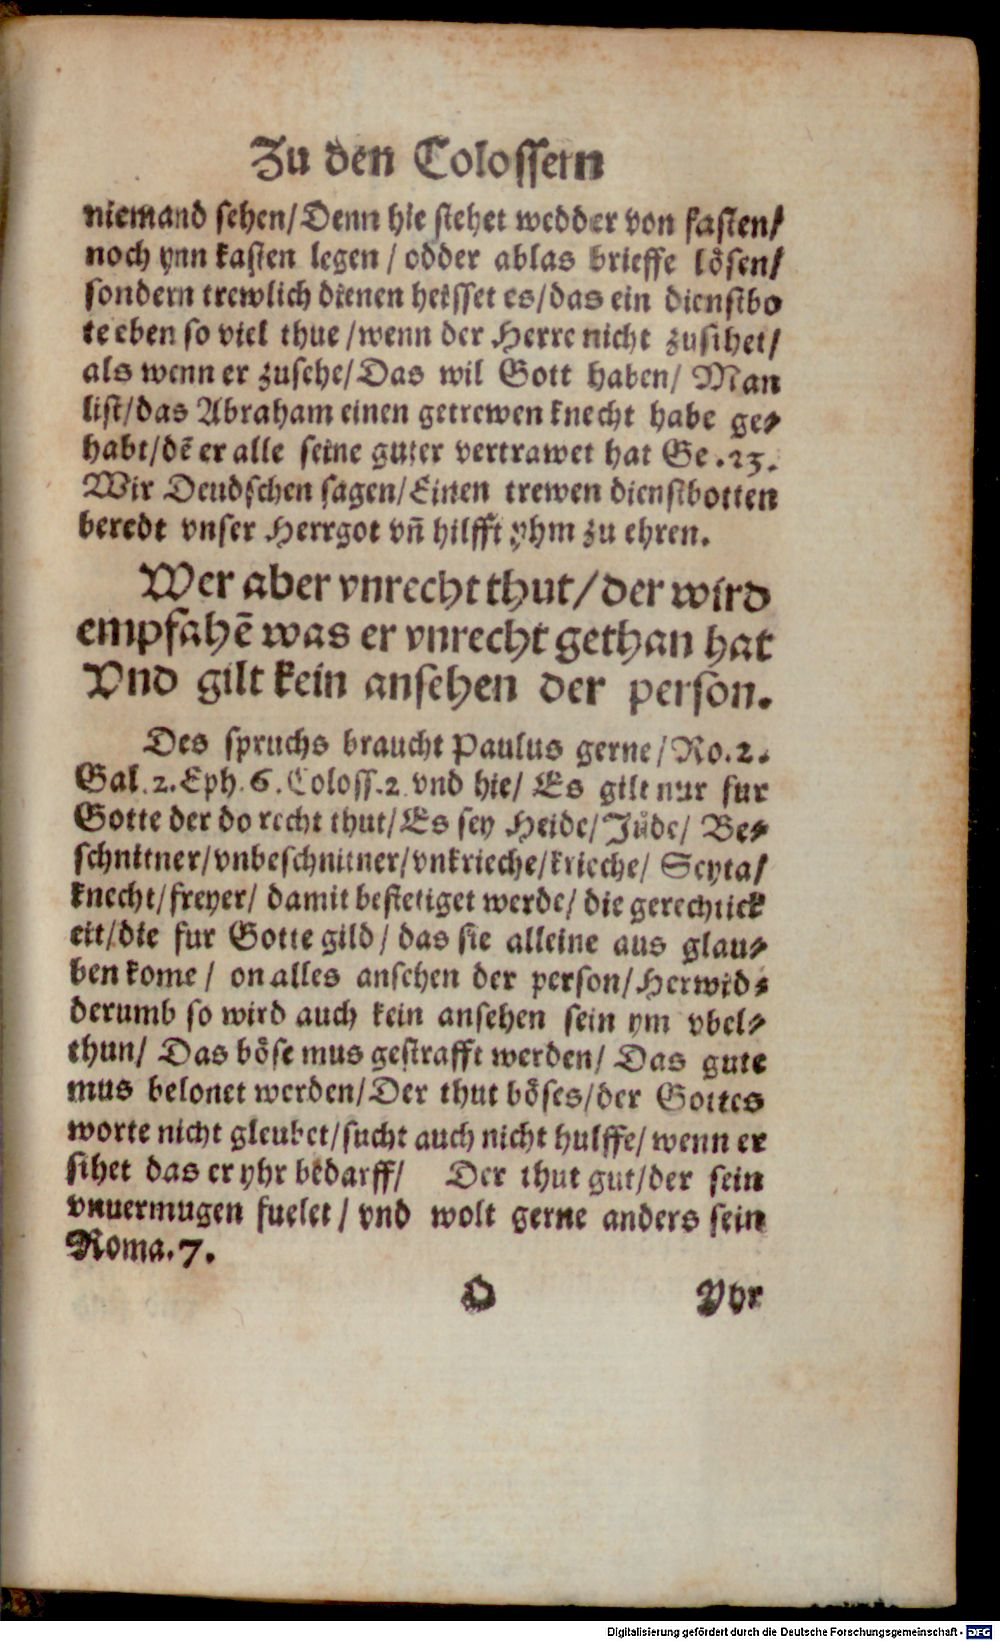 Zu den Colossern
niemand sehen/Denn hie stehet wedder von fasten/
noch ynn kasten legen / odder ablas brieffe lösen/
sondern trewlich dienen heisset es/das ein dienstbo
te eben so viel thue /wenn der Herre nicht zusihet/
als wenn er zusehe/Das wil Gott haben/ Man
list/das Abraham einen getrewen knecht habe ge⸗
habt/dē er alle seine guter vertrawet hat Ge.23.
Wir Deudschen sagen/Einen trewen dienstbotten
beredt vnser Herrgot vn̄ hilfft yhm zu ehren.
Wer aber vnrecht thut/der wird
empfahē was er vnrecht gethan hat
Vnd gilt kein ansehen der person.
Des spruchs braucht Paulus gerne/Ro.2.
Gal.2.Eph.6.Coloss.2 vnd hie/ Es gilt nur fur
Gotte der do recht thut/Es sey Heide/Jüde/ Be⸗
schnitner/vnbeschnitner/vnkrieche/krieche/ Scyta/
knecht/freyer/ damit bestetiget werde/ die gerechtick
eit/die fur Gotte gild/ das sie alleine aus glau⸗
ben kome / on alles ansehen der person/Herwid⸗
derumb so wird auch kein ansehen sein ym vbel⸗
thun/ Das böse mus gestrafft werden/ Das gute
mus belonet werden/Der thut böses/der Gottes
worte nicht gleubet/sucht auch nicht hulffe/wenn er
sihet das er yhr bedarff/ Der thut gut/der sein
vnuermugen fuelet / vnd wolt gerne anders sein
Roma.7.
O Yhr
Digitalisierung gefördert durch die Deutsche Forschungsgemeinschaft - DFG